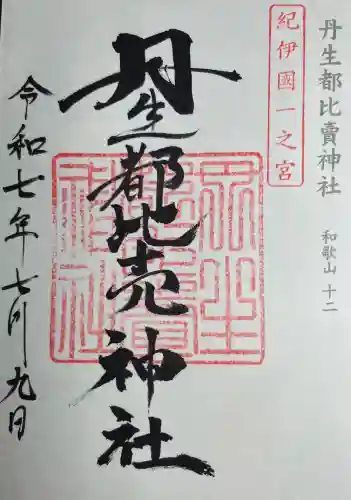 丹生都比賣神社
和歌山 十二
紀伊國一之宮
丹生都比売神社
丹生都比賣神社
令和七年七月九日